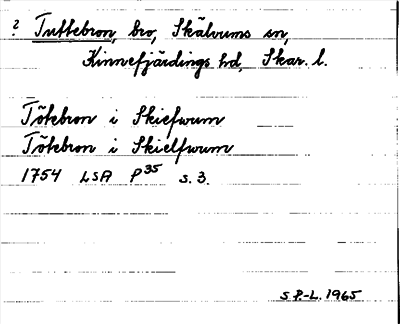 ? Tuttebron, bro, Skälvums sn,
Kinnefjärdings hd, Skar. l.
Tötebron i Skiefwum
Tötebron i Skielfwum
1754 LSA P35 s. 3.
S P.-L. 1965